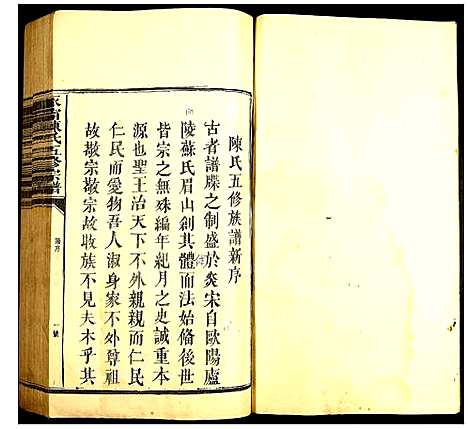 陳氏五修族譜新序
古者譜牒之制盛於炎宋自歐陽廬
陵蘇氏眉山創其體而法始脩後世
皆宗之無殊編年紀月之史誠重本
源也聖王治天下不外親親而仁民
仁民而愛物吾人淑身家不外尊祖
故敬宗敬宗故收族不見夫木乎其
陳氏五修宗譜
序
一